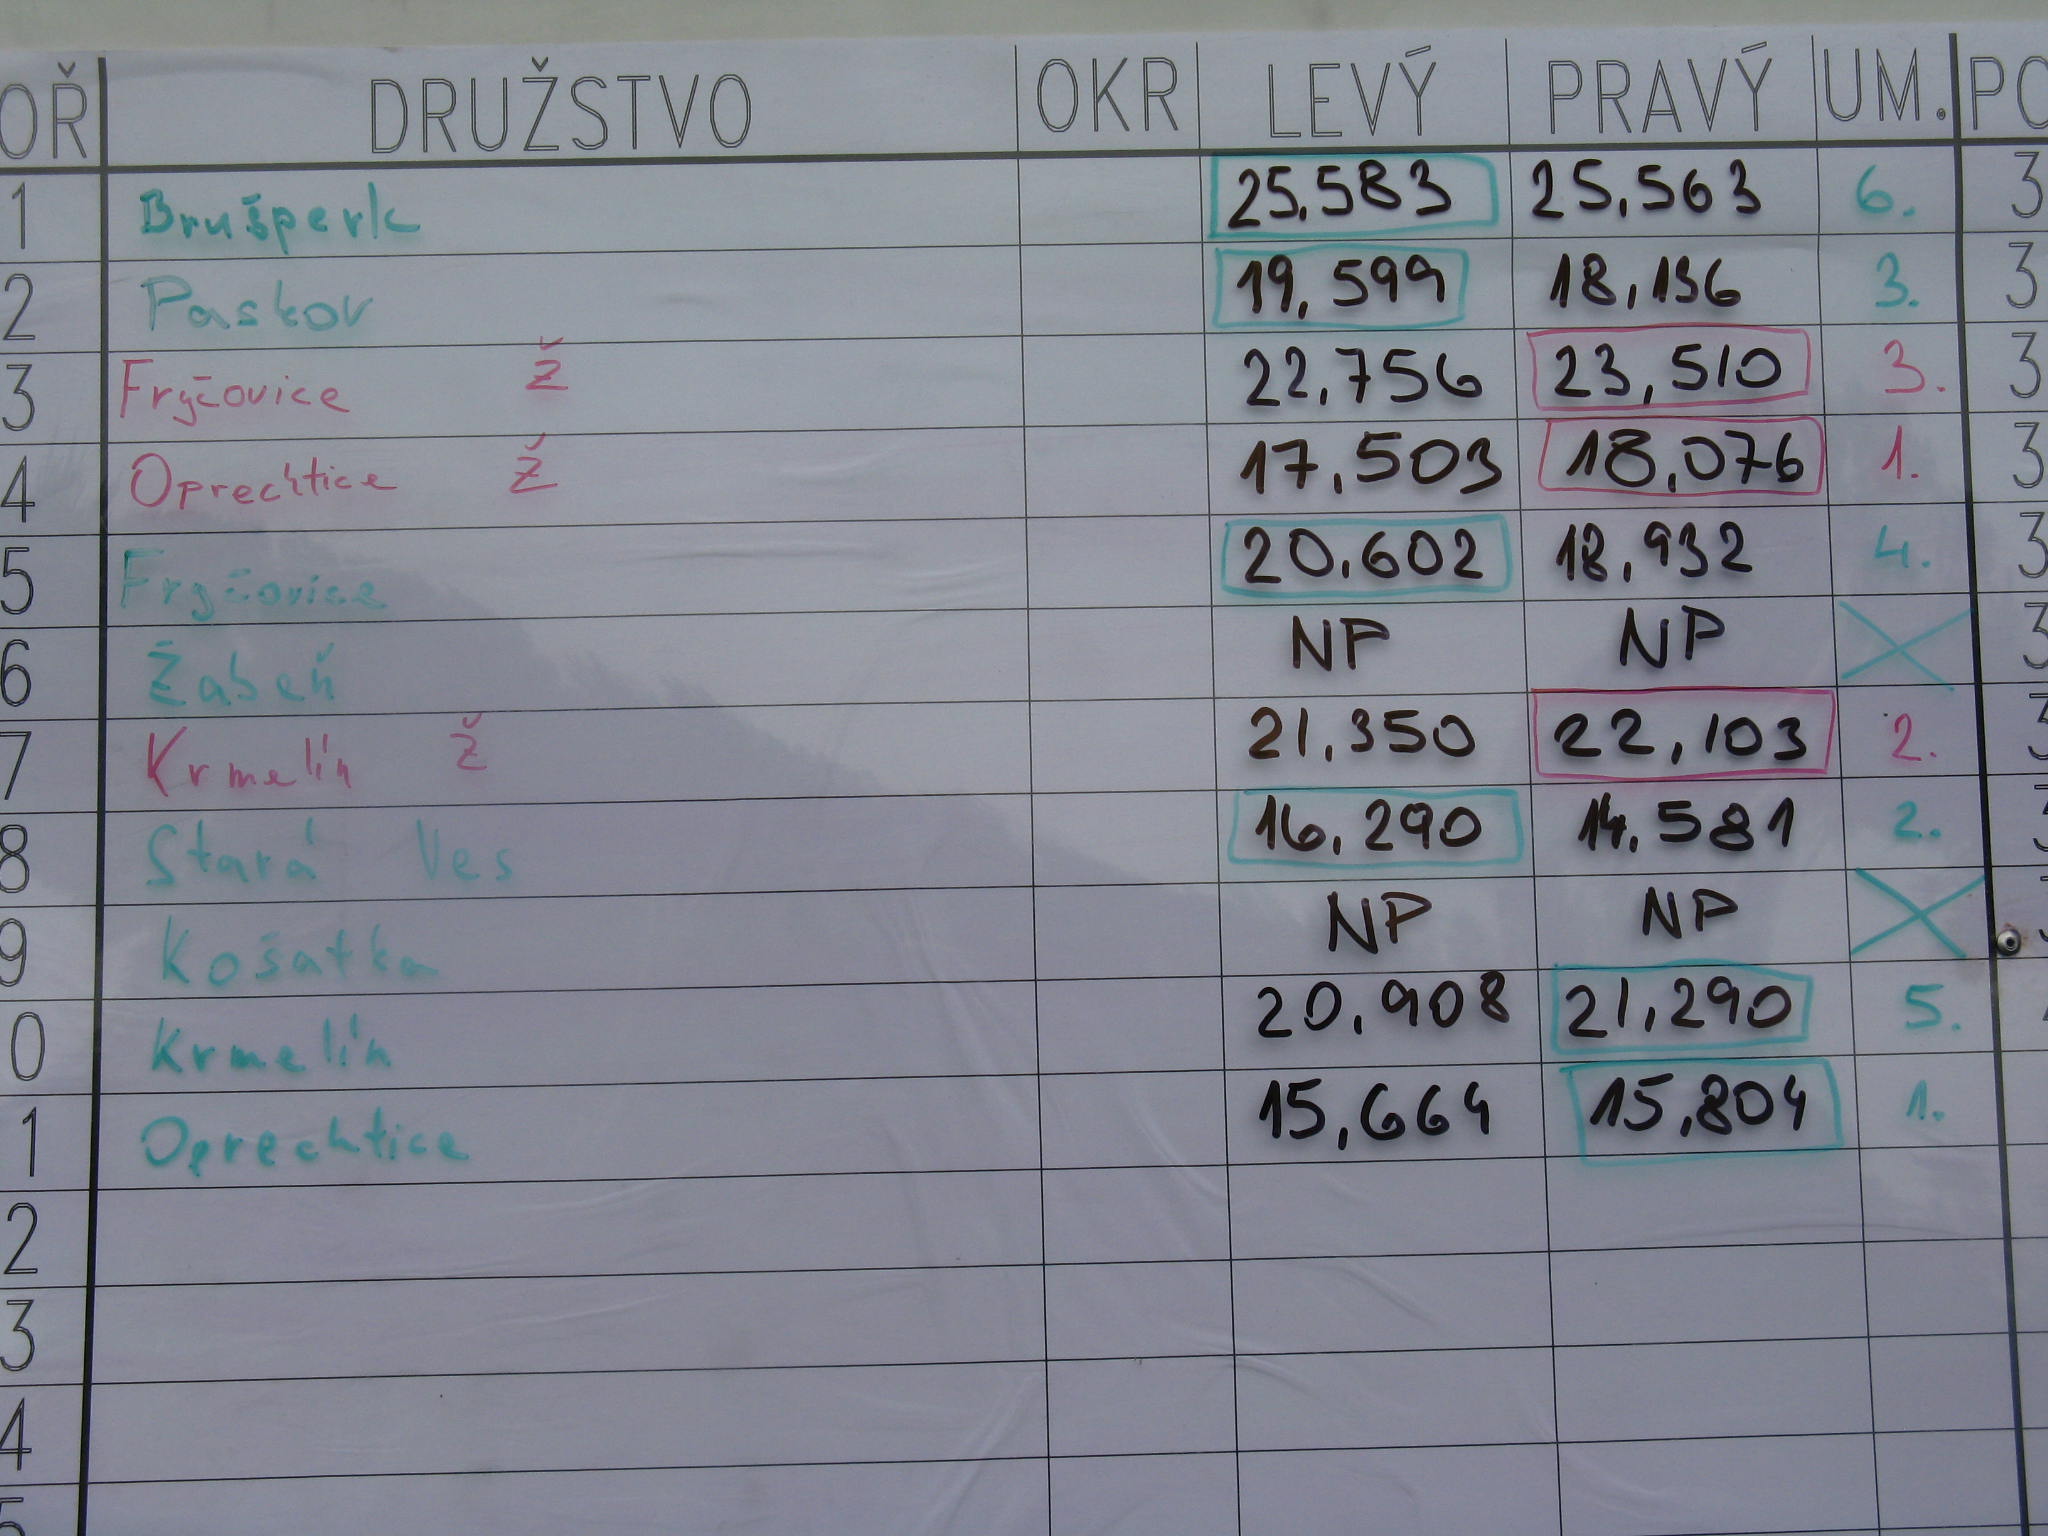 OŘ DRUŽSTVO OKR LEVÝ PRAVÝ UM. PO
1 Brušperk 25,583 25,563 6. 3
2 Paskov 19,599 18,136 3. 3
3 Fryčovice Ž 22,756 23,510 3. 3
4 Oprechtice Ž 17,503 18,076 1. 3
5 Fryčovice 20,602 18,932 4. 3
6 Žabeň NP NP 3
7 Krmelín Ž 21,350 22,103 2. 3
8 Stará Ves 16,290 14,581 2. 3
9 Košatka NP NP
0 Krmelín 20,908 21,290 5.
1 Oprechtice 15,664 15,804 1.
2
3
4
5